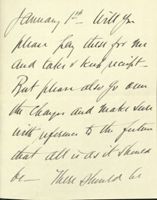 January 1st Will you
please pay these for me
and take & keep receipt.
But please also go over
the charges and make sure
with reference to the future
that all is as it should
be — There should be